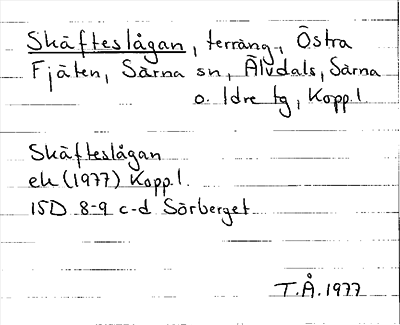 Skäfteslågan, terräng, Östra
Fjäten, Särna sn, Älvdals, Särna
o. Idre tg, Kopp.l.
Skäfteslågan
ek (1977) Kopp.l.
15D 8-9 c-d Sörberget
T.Å. 1977